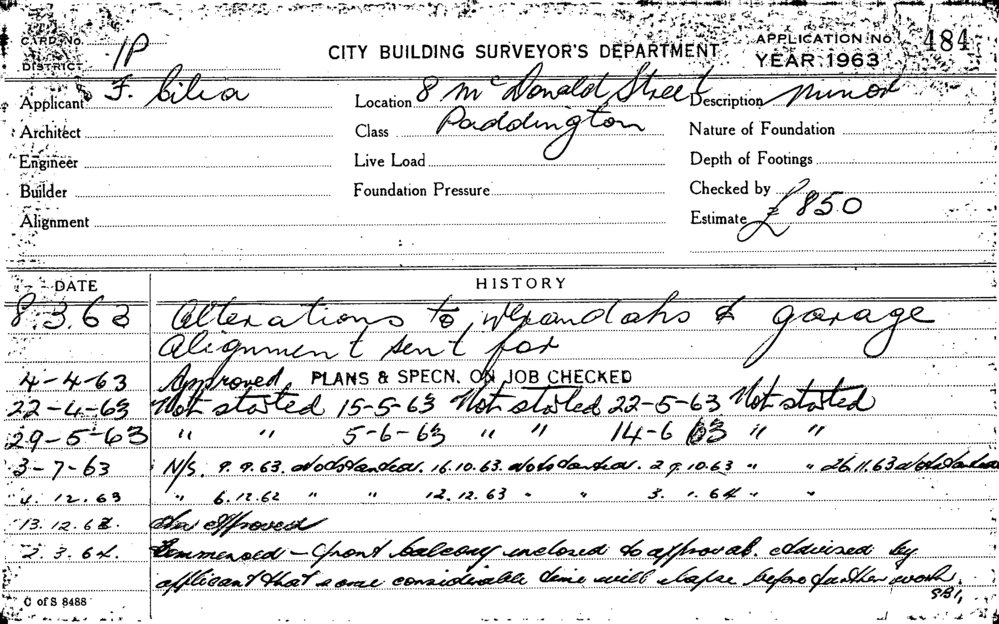 CARD No.
DISTRICT 1P
CITY BUILDING SURVEYOR'S DEPARTMENT
APPLICATION No. 484
YEAR 1963
Applicant F. Cilia
Location 8 McDonald Street
Paddington
Description Minor
Architect
Class
Nature of Foundation
Engineer
Live Load
Depth of Footings
Builder
Foundation Pressure
Checked by
Alignment
Estimate £850
DATE HISTORY
8.3.63 Alterations to verandahs & garage
Alignment sent for
4-4-63 Approved PLANS & SPECN. ON JOB CHECKED
22-4-63 Not started 15-5-63 Not started 22-5-63 Not started
29-5-63 " " 5-6-63 " " 14-6 63 " "
3-7-63 N/S. 9.9.63. Not started. 16.10.63. Not started. 29.10.63 " " 26.11.63 Not started
4.12.63 " 6.12.62 " " 12.12.63 " " 3.1.64 " "
13.12.63. Approved
2.3.64. Commenced – front balcony enclosed to approval. Advised by
applicant that some considerable time will elapse before further work.
C of S 8488